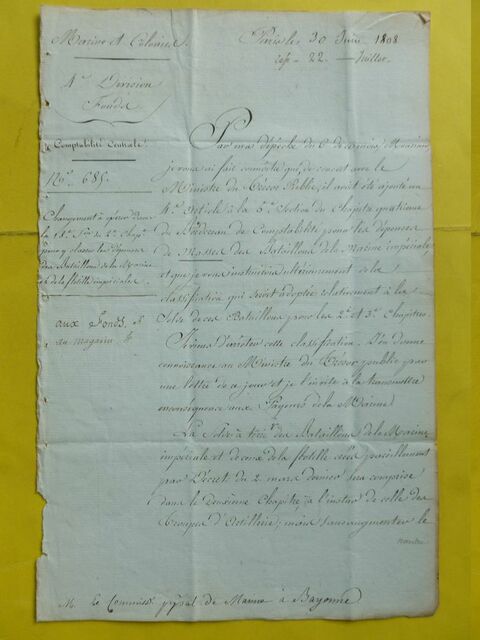 Marine et Colonies.
Paris le 30 Juin 1808
22 Juillet
4e Division
Fonds
Comptabilité Centrale
No. 685.
Changement à opérer dans
la 1re Son. du 2e Chapre.
pour y classer les dépenses
des Bataillons de la Marine
et de la flotille impériale
aux Fonds
au magasin
Par ma dépêche du 6 de ce mois, Monsieur
je vous ai fait connaître que, de concert avec le
Ministre du Trésor Public, il avait été ajouté un
4e article à la 6e Section du Chapitre quatrieme
du Bordereau de Comptabilité pour les dépenses
de Masses des Bataillons de la Marine impériale
et que je vous instruirais ultérieurement de la
classification qui serait adoptée relativement à la
Solde de ces Bataillons pour les 2e et 3e Chapitres.
Je viens d'arrêter cette classification. J'en donne
connaissance au Ministre du Trésor public par
une lettre de ce jour et je l'invite à la transmettre
en conséquence aux Payeurs de la Marine
La Solde à terre des Bataillons de la Marine
impériale et de ceux de la flotille créés
par Décret du 2 mars dernier sera comprise
dans le Deuxième Chapitre à l'instar de celle des
Troupes d'Artillerie; mais sans augmenter le
nombre
M. le Commissre. ppal de Marine à Bayonne